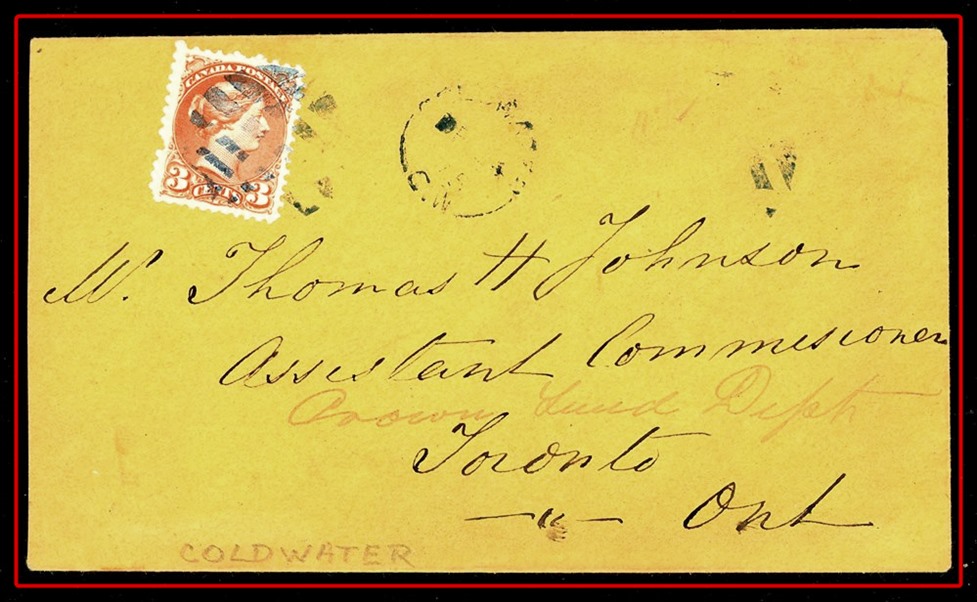 CANADA POSTAGE
3 CENTS 3
Thomas H Johnson
Assistant Commisioner
Crown Land Dept
Toronto
Ont
COLDWATER